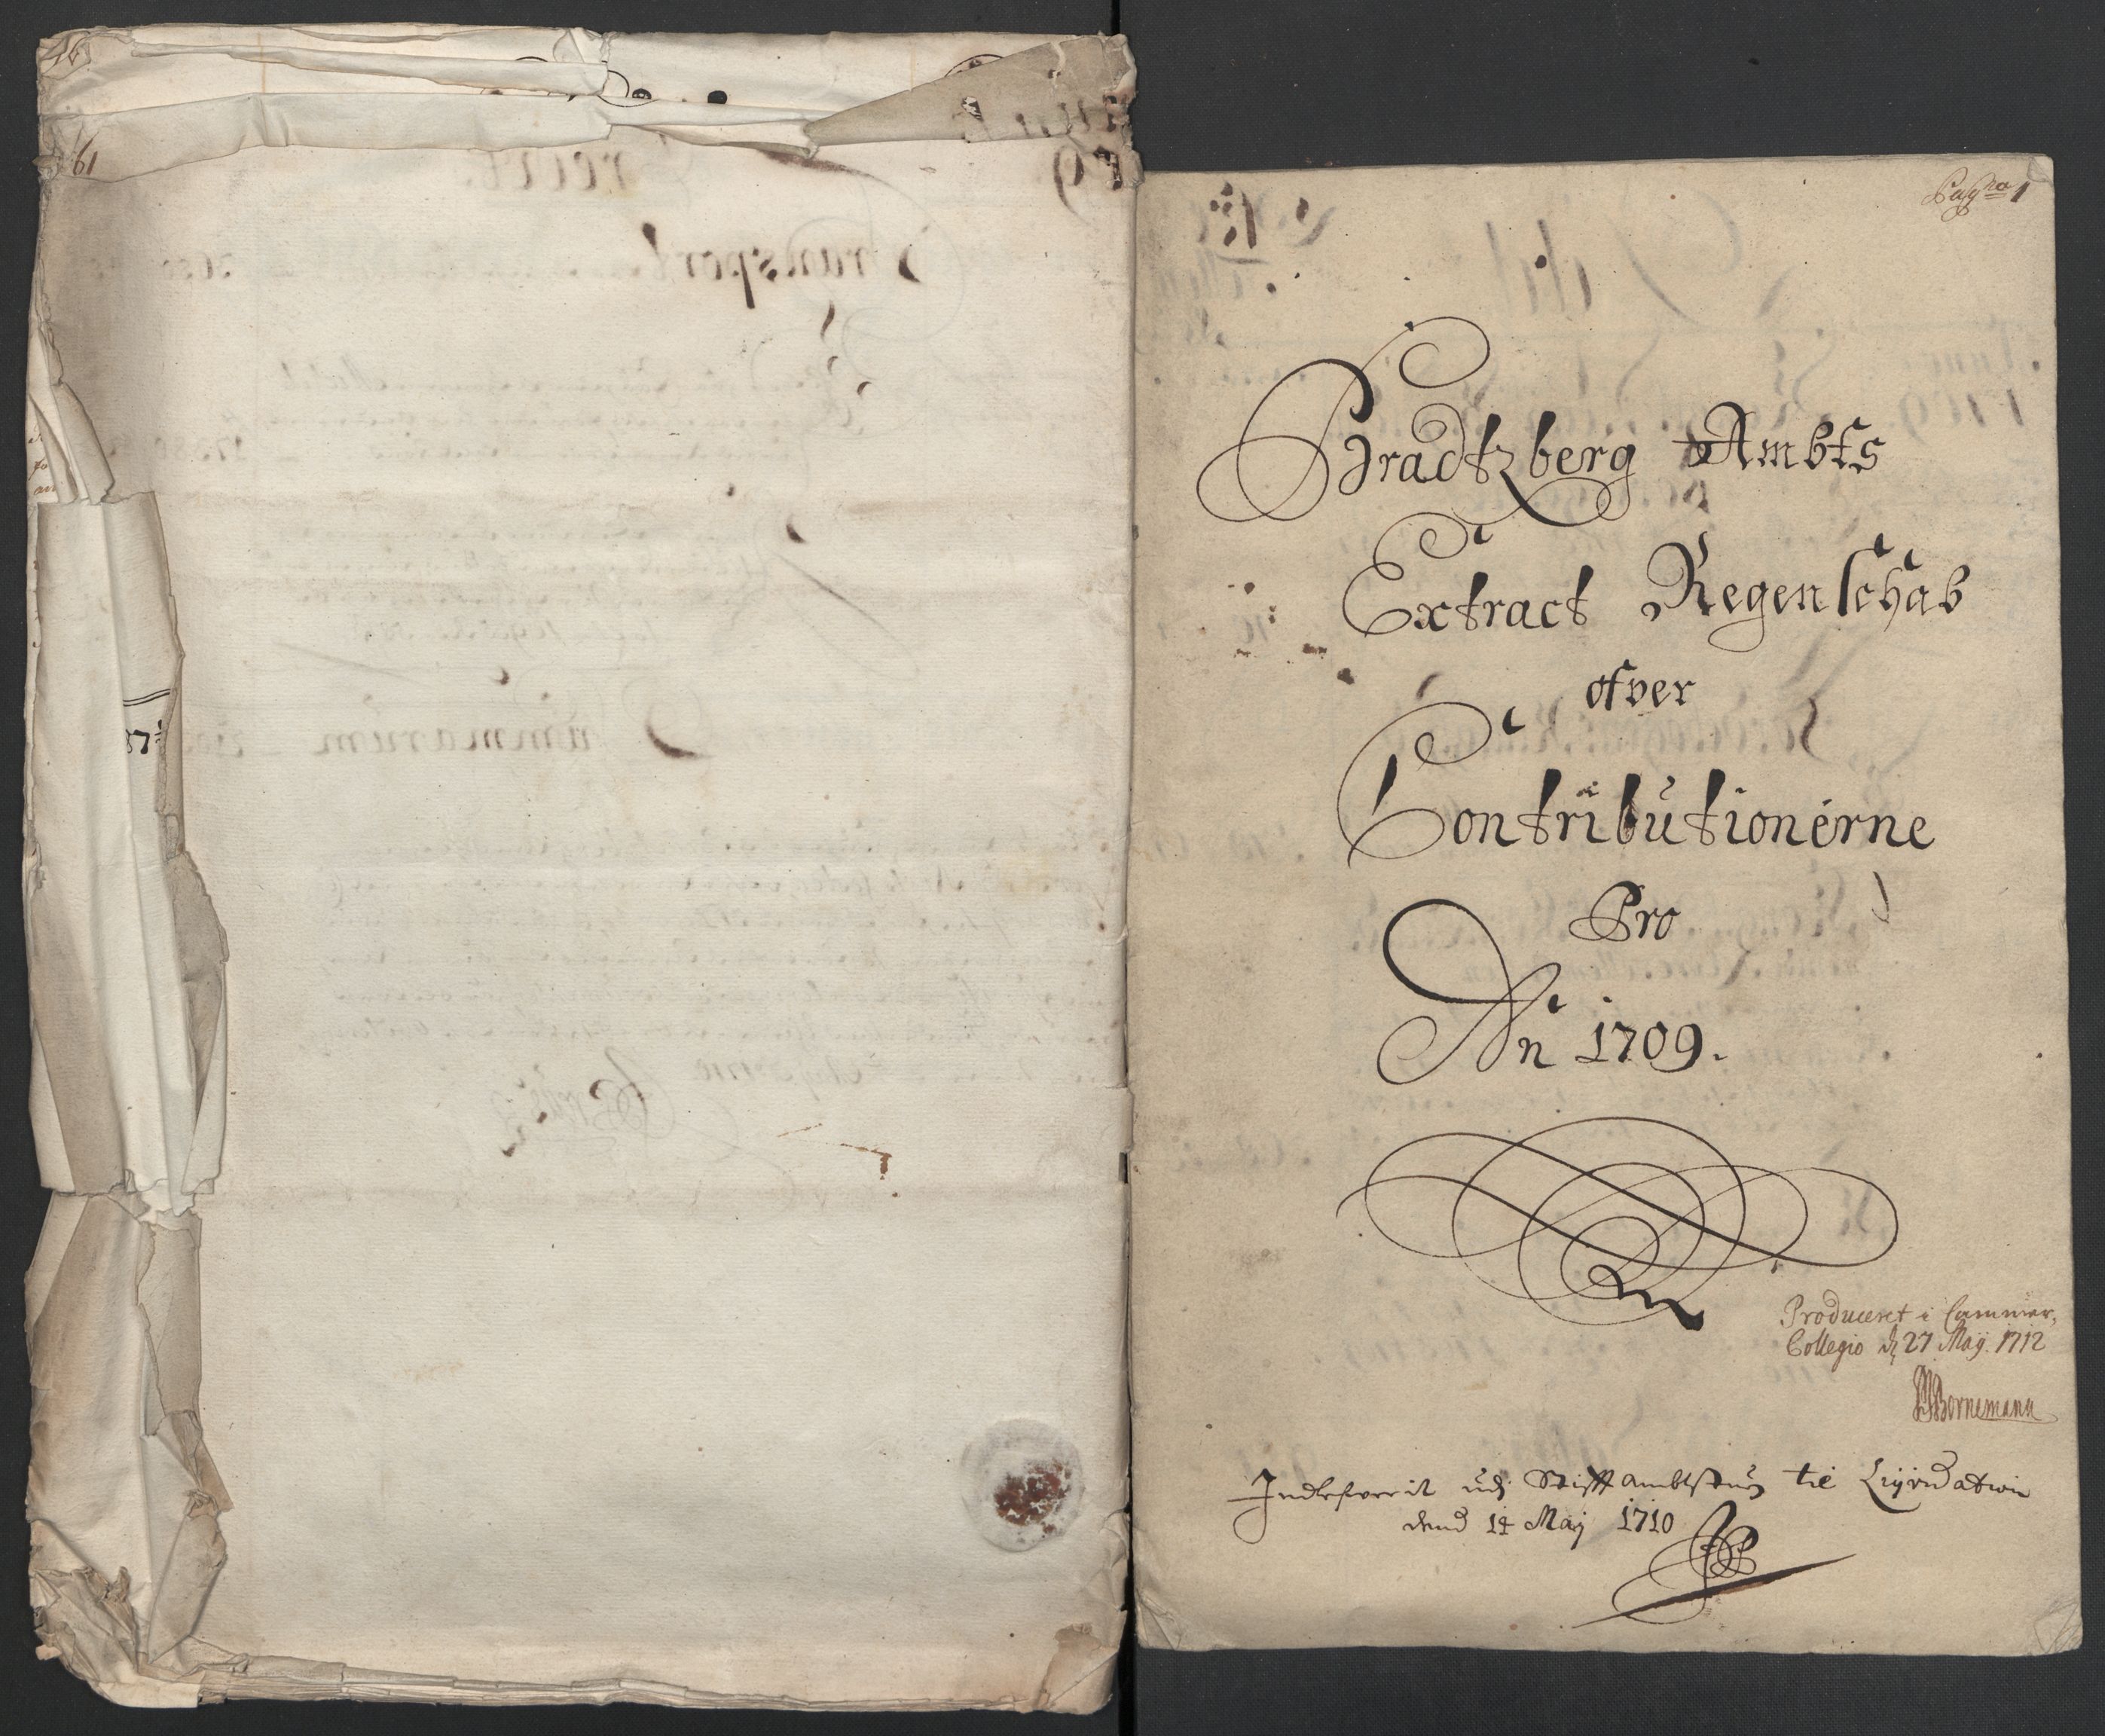 61
87½
Pagina 1
Bradtzberg Ambts
Extract Regenschab
ofver
Contributionerne
Pro
An 1709.
Produceret i Cammer,
Collegio d 27 Maij. 1712
Bornemann
Indlefverit udj Stifft ambtstuen til Liqvidation
dend 14 Maij 1710